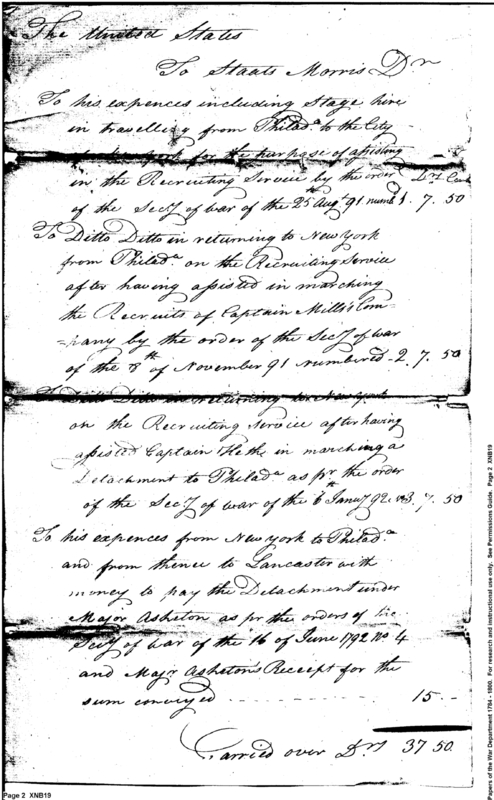 The United States
To Staats Morris Dr
To his expences including Stage hire
in travelling from Philada. to the City
of New York for the purpose of assisting
in the Recruiting Service by the order Drs Cents
of the Secy of war of the 25th Augt 91 numd 1. 7. 50
To Ditto Ditto in returning to New York
from Philada on the Recruiting Service
after having assisted in marching
the Recruits of Captain Mills's Com=
=pany by the order of the Secy of war
of the 8th of November 91 numbered - 2. 7. 50
To Ditto Ditto in returning to New York
on the Recruiting Service after having
assisted Captain Heth in marching a
Detachment to Philada as pr the order
of the Secy of war of the 6th Jany 92 no3. 7. 50
To his expences from New york to Philada
and from thence to Lancaster with
money to pay the Detachment under
Major Asheton as pr the orders of the
Secy of war of the 16 of June 1792 no 4
and Majr Asheton's Receipt for the
sum conveyed - - - - - 15 . -
Carried over Drs 37 50.
Page 2 XNB19
Papers of the War Department 1784 - 1800. For research and instructional use only. See Permissions Guide. Page 2 XNB19